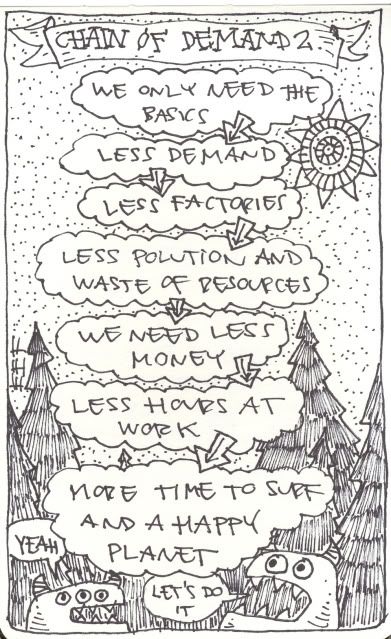 CHAIN OF DEMAND 2.
WE ONLY NEED THE
BASICS
LESS DEMAND
LESS FACTORIES
LESS POLUTION AND
WASTE OF RESOURCES
WE NEED LESS
MONEY
LESS HOURS AT
WORK
MORE TIME TO SURF
AND A HAPPY
PLANET
YEAH
LET'S DO
IT